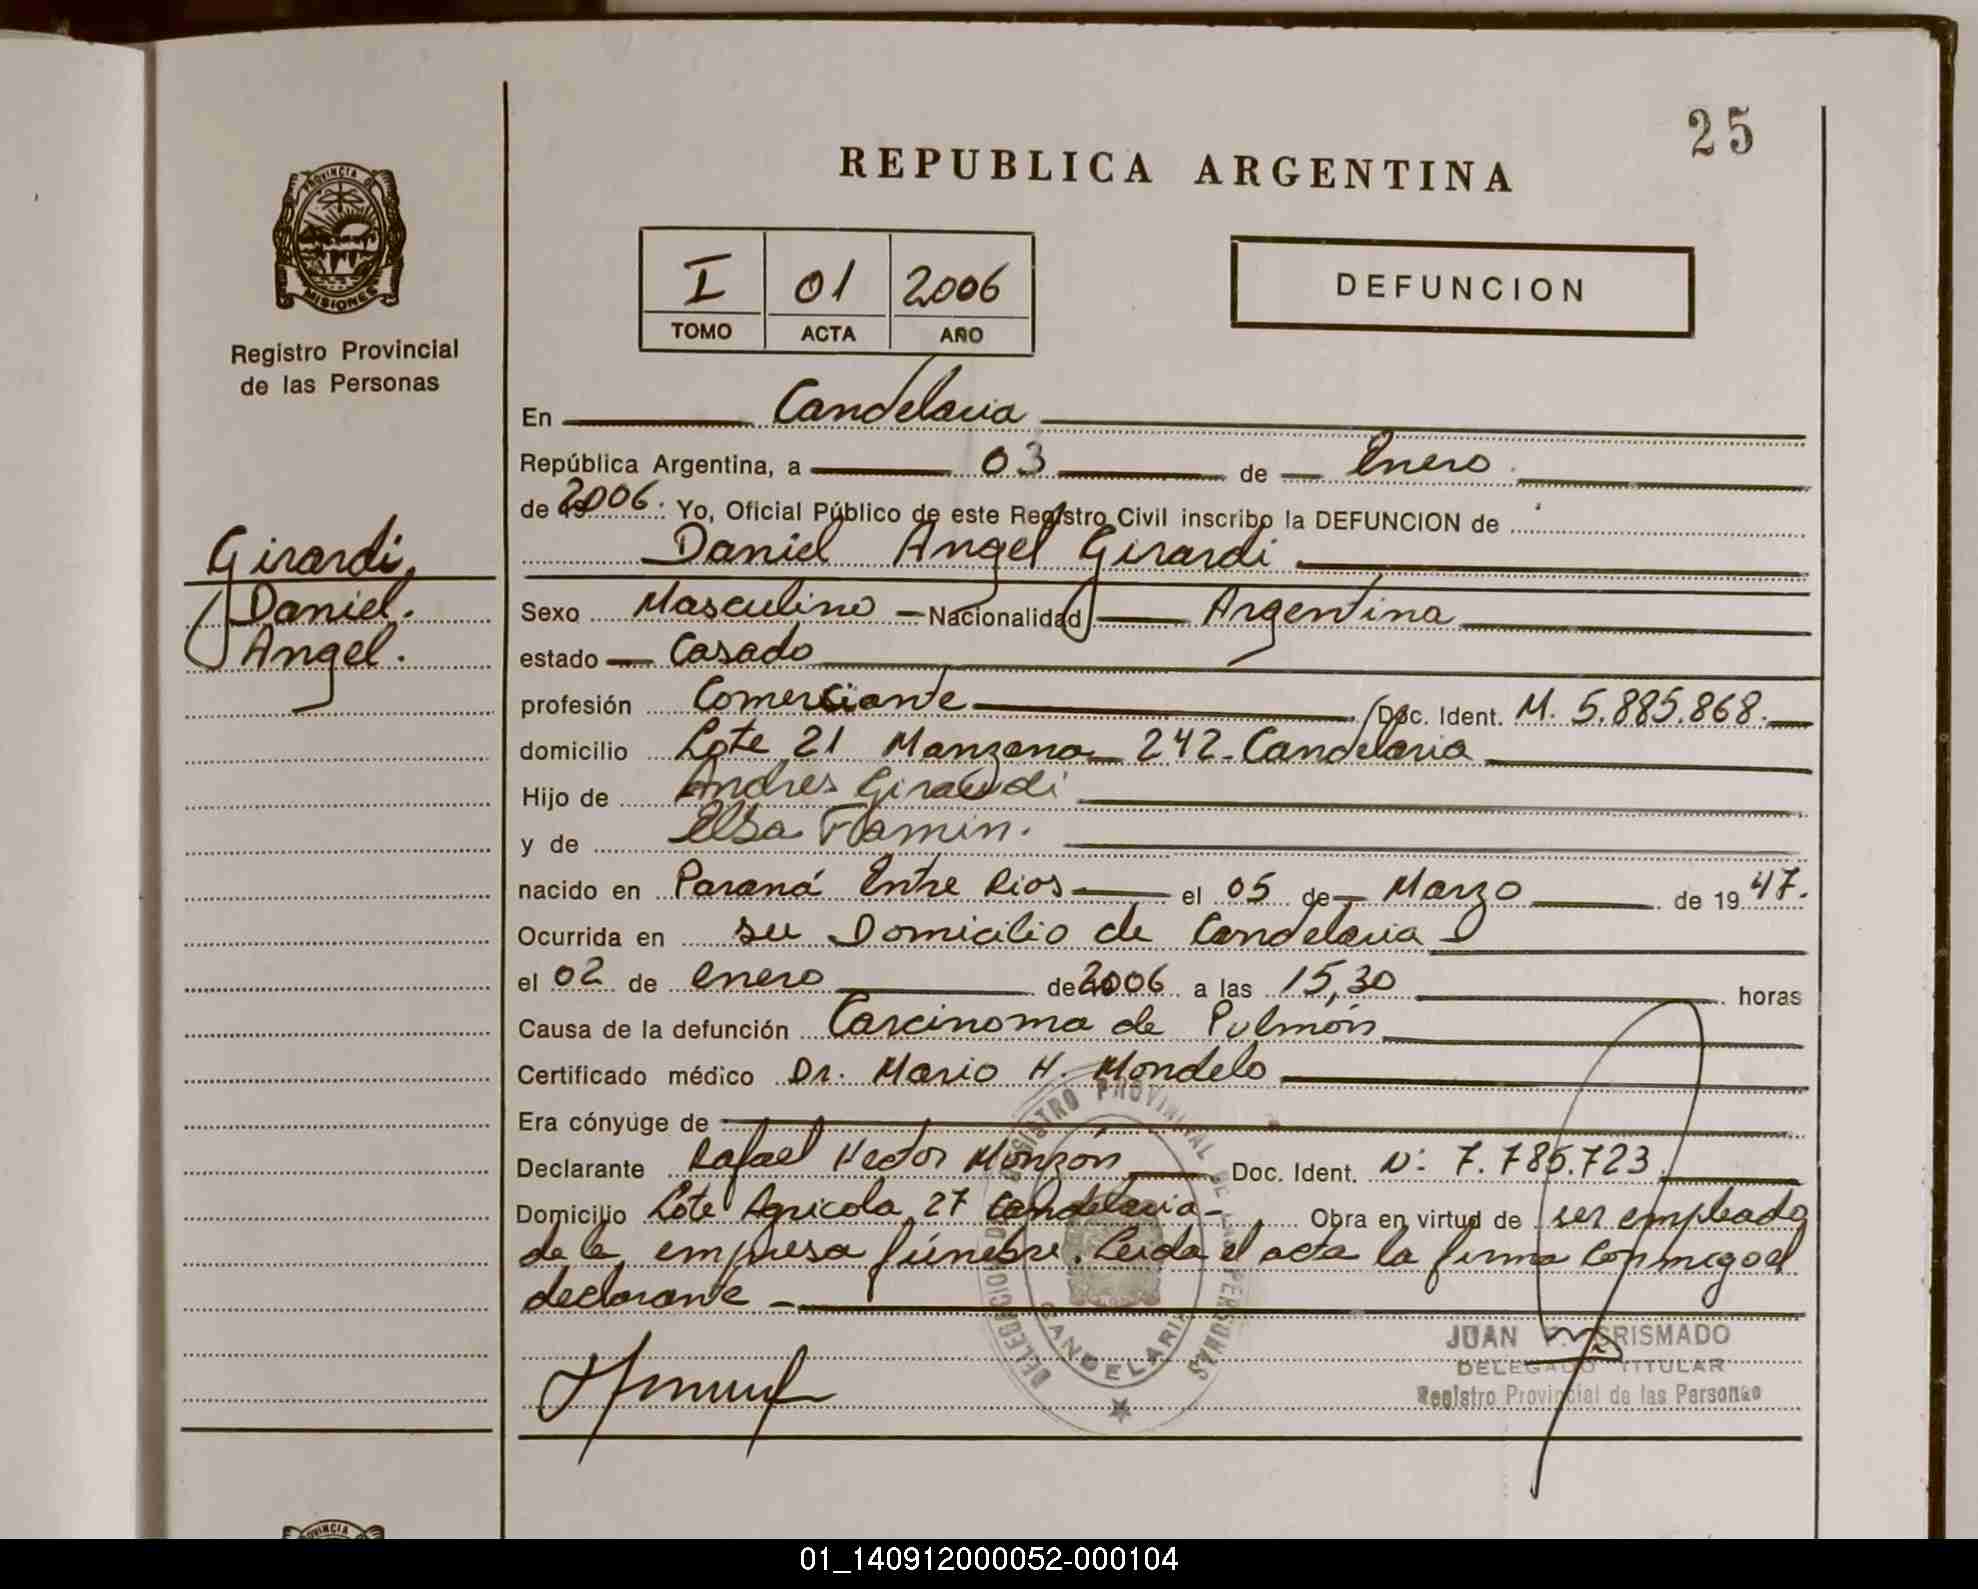 25
REPUBLICA ARGENTINA
PROVINCIA DE MISIONES
Registro Provincial
de las Personas
I 01 2006
TOMO ACTA AÑO
DEFUNCION
Girardi,
Daniel.
Angel.
En Candelaria
República Argentina, a 03 de Enero.
de 2006. Yo, Oficial Público de este Registro Civil inscribo la DEFUNCION de
Daniel Angel Girardi
Sexo Masculino - Nacionalidad Argentina
estado Casado
profesión Comerciante Doc. Ident. M. 5.885.868.
domicilio Lote 21 Manzana 242 - Candelaria
Hijo de Andres Girardi
y de Elsa Flamin.
nacido en Paraná Entre Rios el 05 de Marzo de 1947.
Ocurrida en su Domicilio de Candelaria
el 02 de enero de 2006 a las 15,30 horas
Causa de la defunción Carcinoma de Pulmón
Certificado médico Dr. Mario H. Mondelo
Era cónyuge de
Declarante Rafael Hector Monzón Doc. Ident. Nº 7.785.723
Domicilio Lote Agricola 27 Candelaria - Obra en virtud de ser empleado
de la empresa fúnebre. Leida el acta la firma conmigo el
declarante -
REGISTRO PROVINCIAL DE LAS PERSONAS
DELEGACION
CANDELARIA
JUAN GRISMADO
DELEGADO TITULAR
Registro Provincial de las Personas
PROVINCIA
01_140912000052-000104